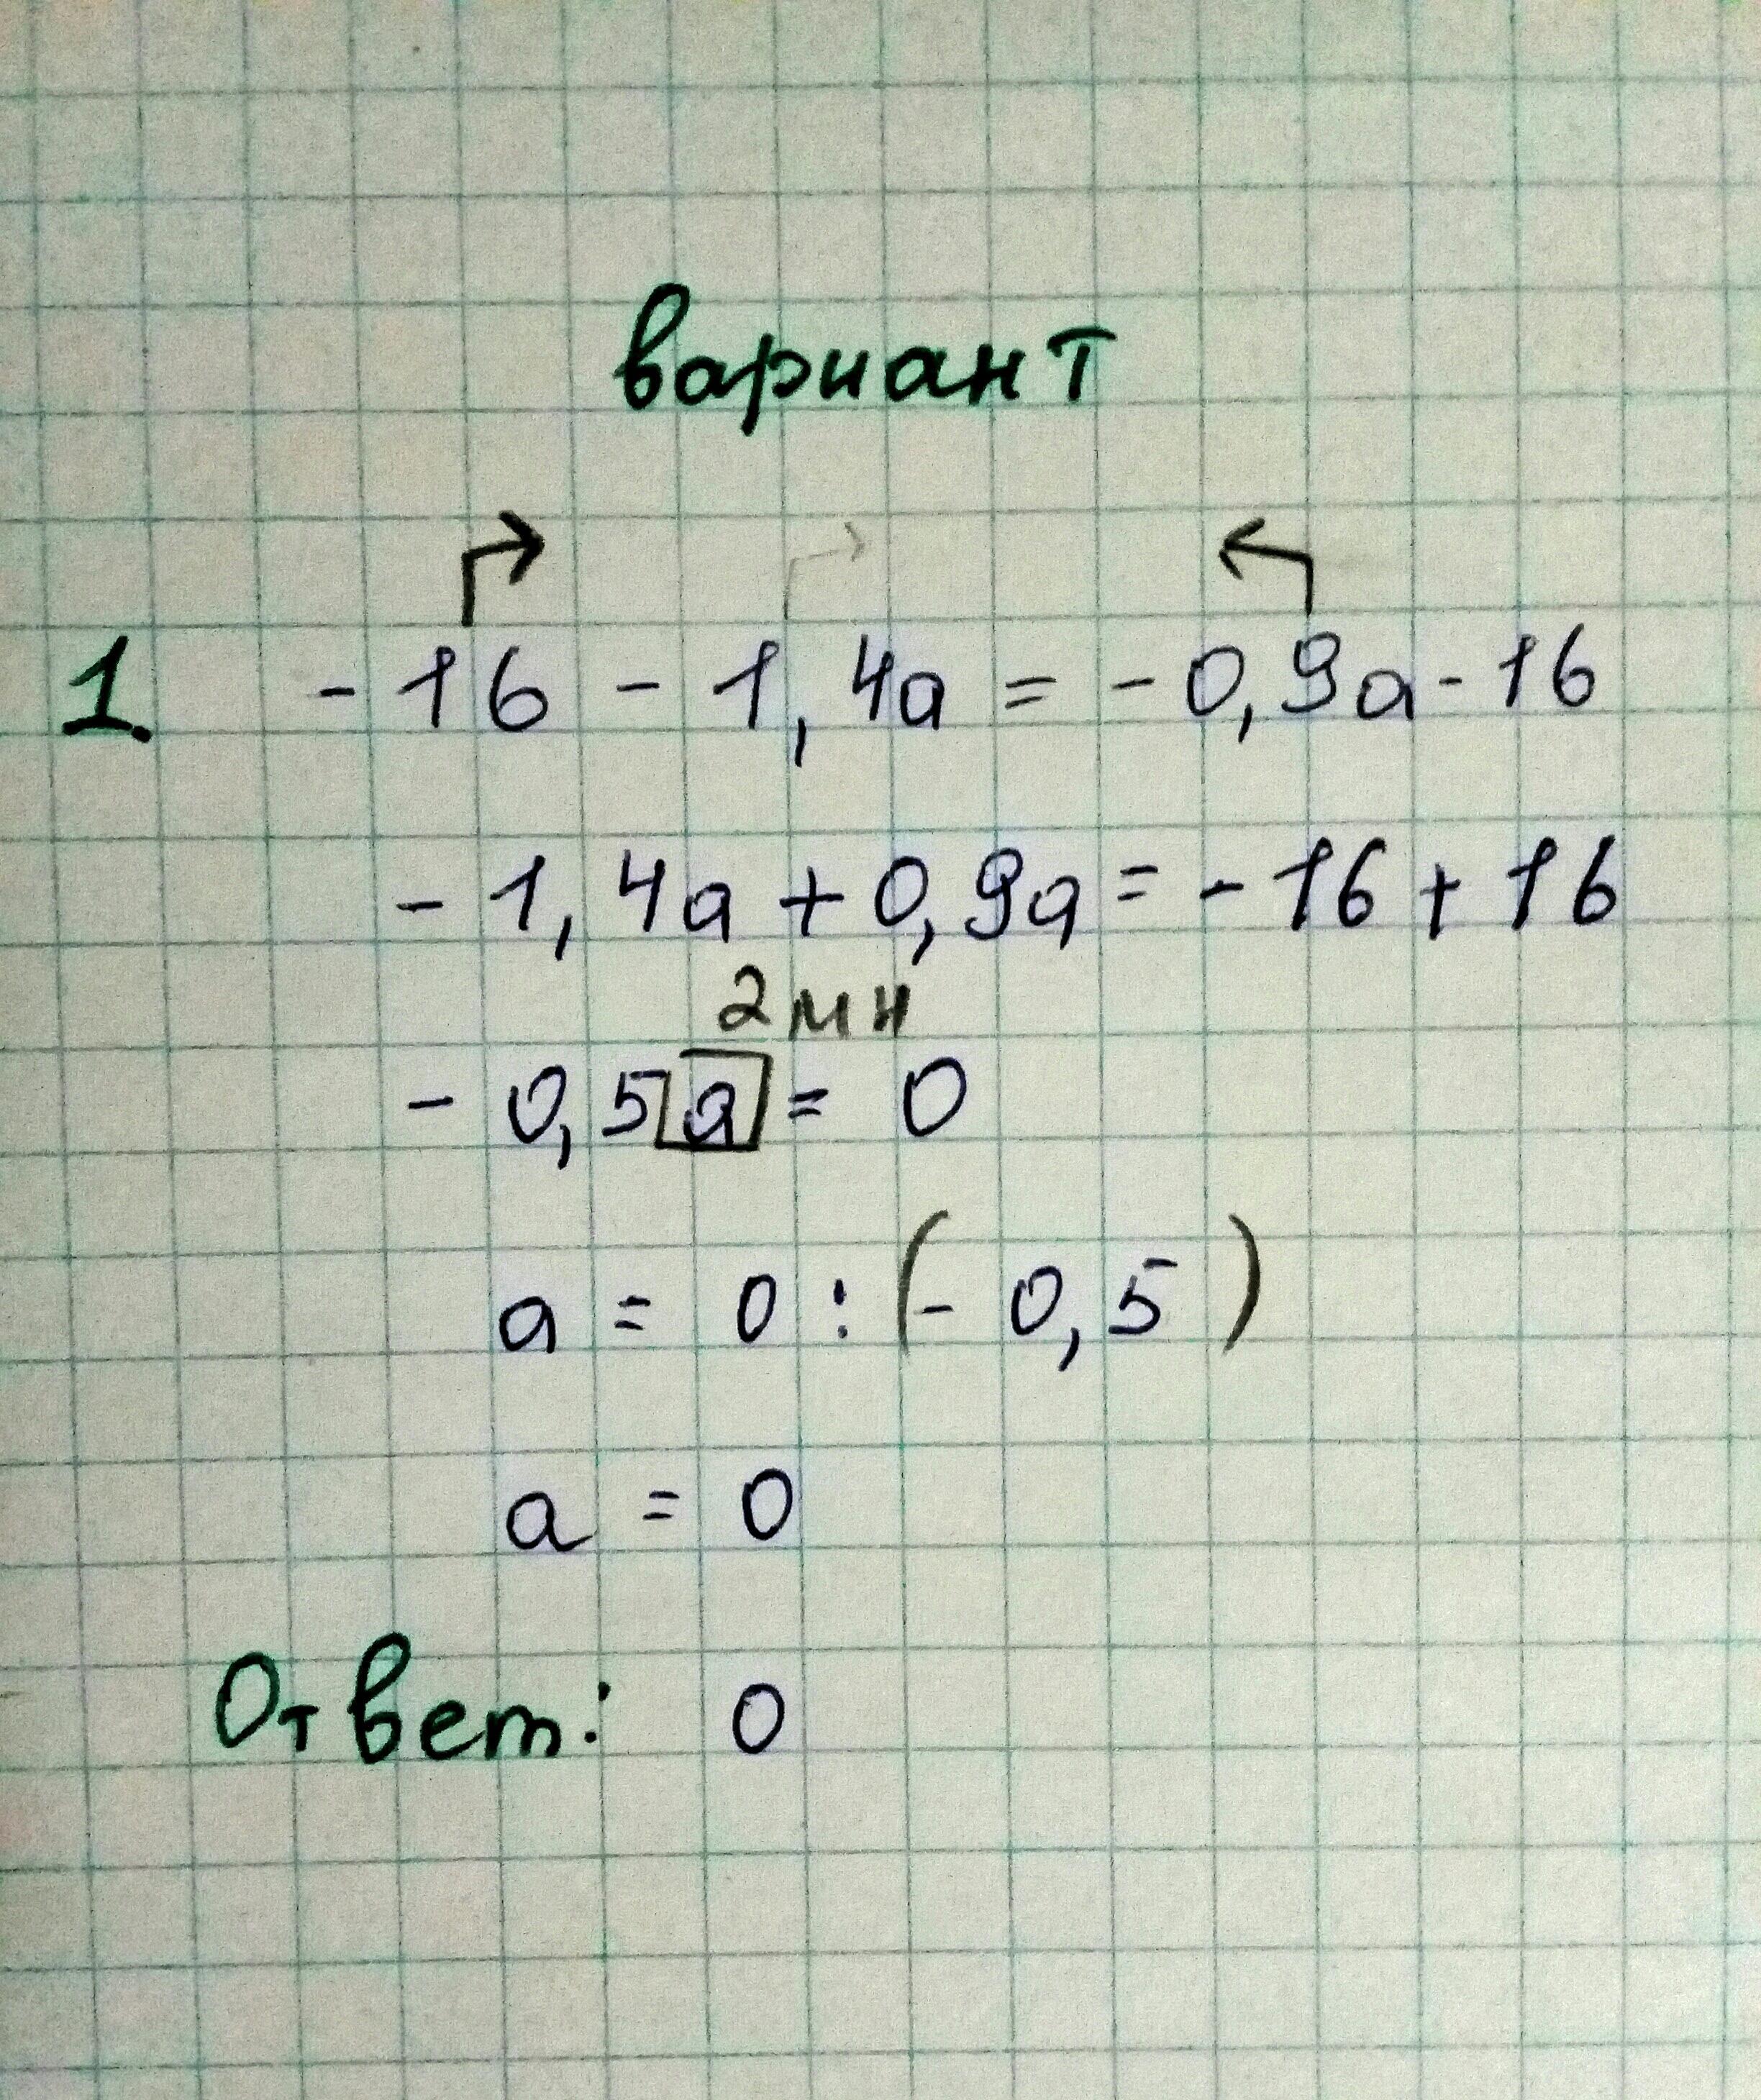 вариант
1. - 16 - 1,4a = - 0,9a - 16
- 1,4a + 0,9a = - 16 + 16
2 мн
- 0,5a = 0
a = 0 : (- 0,5)
a = 0
Ответ: 0